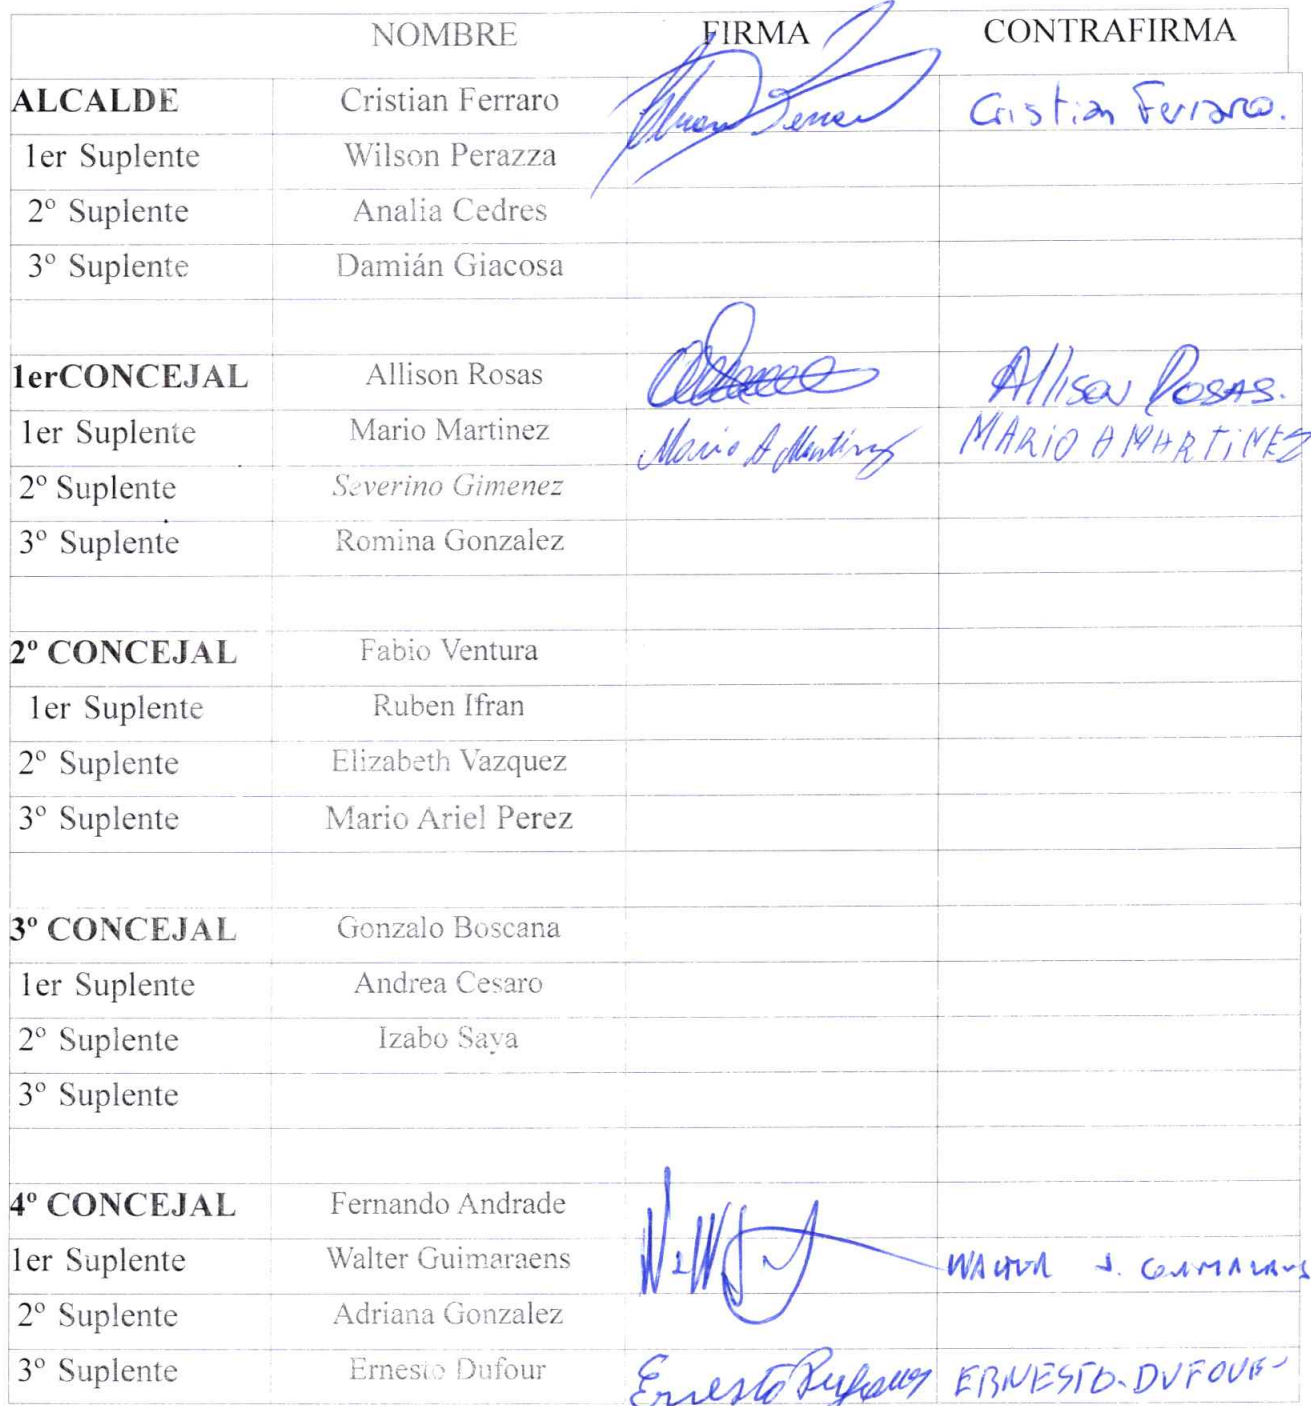 NOMBRE FIRMA CONTRAFIRMA
ALCALDE Cristian Ferraro Cristian Ferraro.
1er Suplente Wilson Perazza
2º Suplente Analia Cedres
3º Suplente Damián Giacosa
1erCONCEJAL Allison Rosas Allison Rosas.
1er Suplente Mario Martinez Mario A Martinez MARIO A MARTiNEZ
2º Suplente Severino Gimenez
3º Suplente Romina Gonzalez
2º CONCEJAL Fabio Ventura
1er Suplente Ruben Ifran
2º Suplente Elizabeth Vazquez
3º Suplente Mario Ariel Perez
3º CONCEJAL Gonzalo Boscana
1er Suplente Andrea Cesaro
2º Suplente Izabo Saya
3º Suplente
4º CONCEJAL Fernando Andrade
1er Suplente Walter Guimaraens WALTER J.
2º Suplente Adriana Gonzalez
3º Suplente Ernesto Dufour Ernesto Dufour ERNESTO-DUFOUR